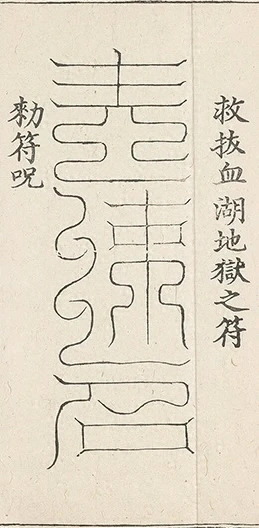 救拔血湖地獄之符
勑符呪